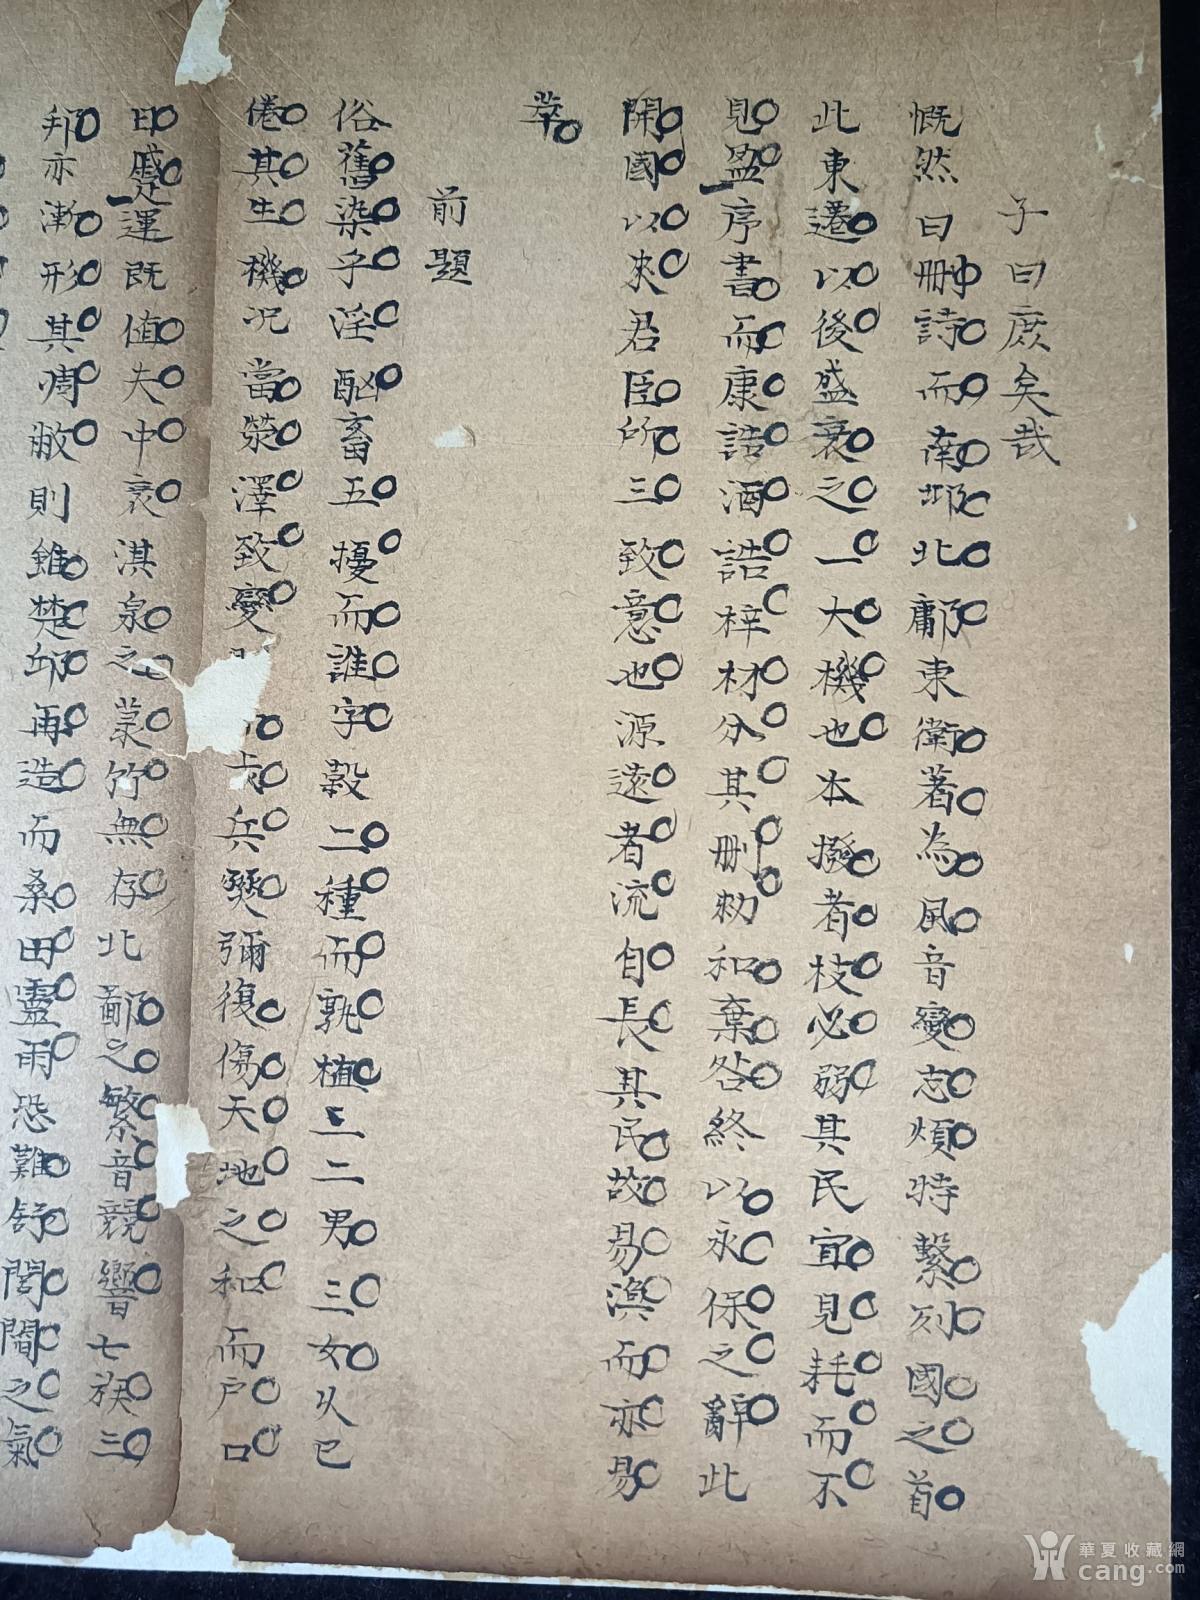 子曰庶矣哉
慨然曰刪詩而南邶北鄘東衛著為風音變志煩特繫列國之首
此東遷以後盛衰之一大機也本撥者枝必弱其民宜見耗而不
見盈序書而康誥酒誥梓材分其刪勑和棄咎終以永保之辭此
開國以來君臣所三致意也源遠者流自長其民故易渙而亦易
萃
前題
俗舊染乎淫酗畜五擾而誰字穀二種而孰植二男三女久已
倦其生機况當滎澤致變兵燹彌復傷天地之和而户口
日蹙運既值夫中衰淇泉之菉竹無存北鄙之繁音競響七族三
邦亦漸形其凋敝則雖楚邱再造而桑田靈雨恐難舒閭閻之氣
華夏收藏網
cang.com